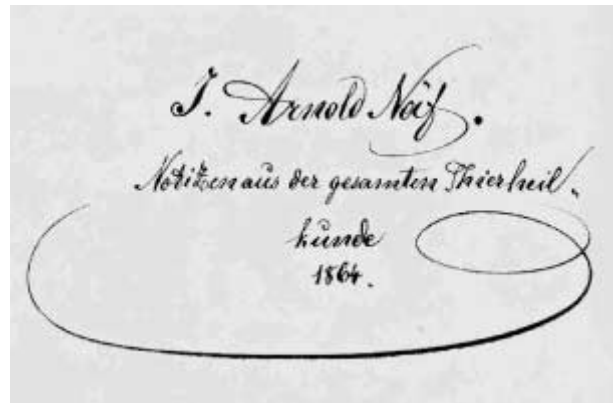 J. Arnold Näf.
Notizen aus der gesamten Thierheil-
kunde
1864.